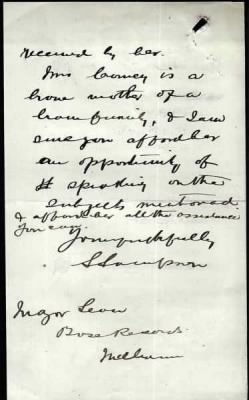 received by her.
Mrs Cooney is a
brave mother of a
brave family, & I am
sure you afford her
an opportunity of
speaking on the
subjects mentioned
& afford her all the assistance
you can.
Yours faithfully
Major Lean
Base Records
Melbourne